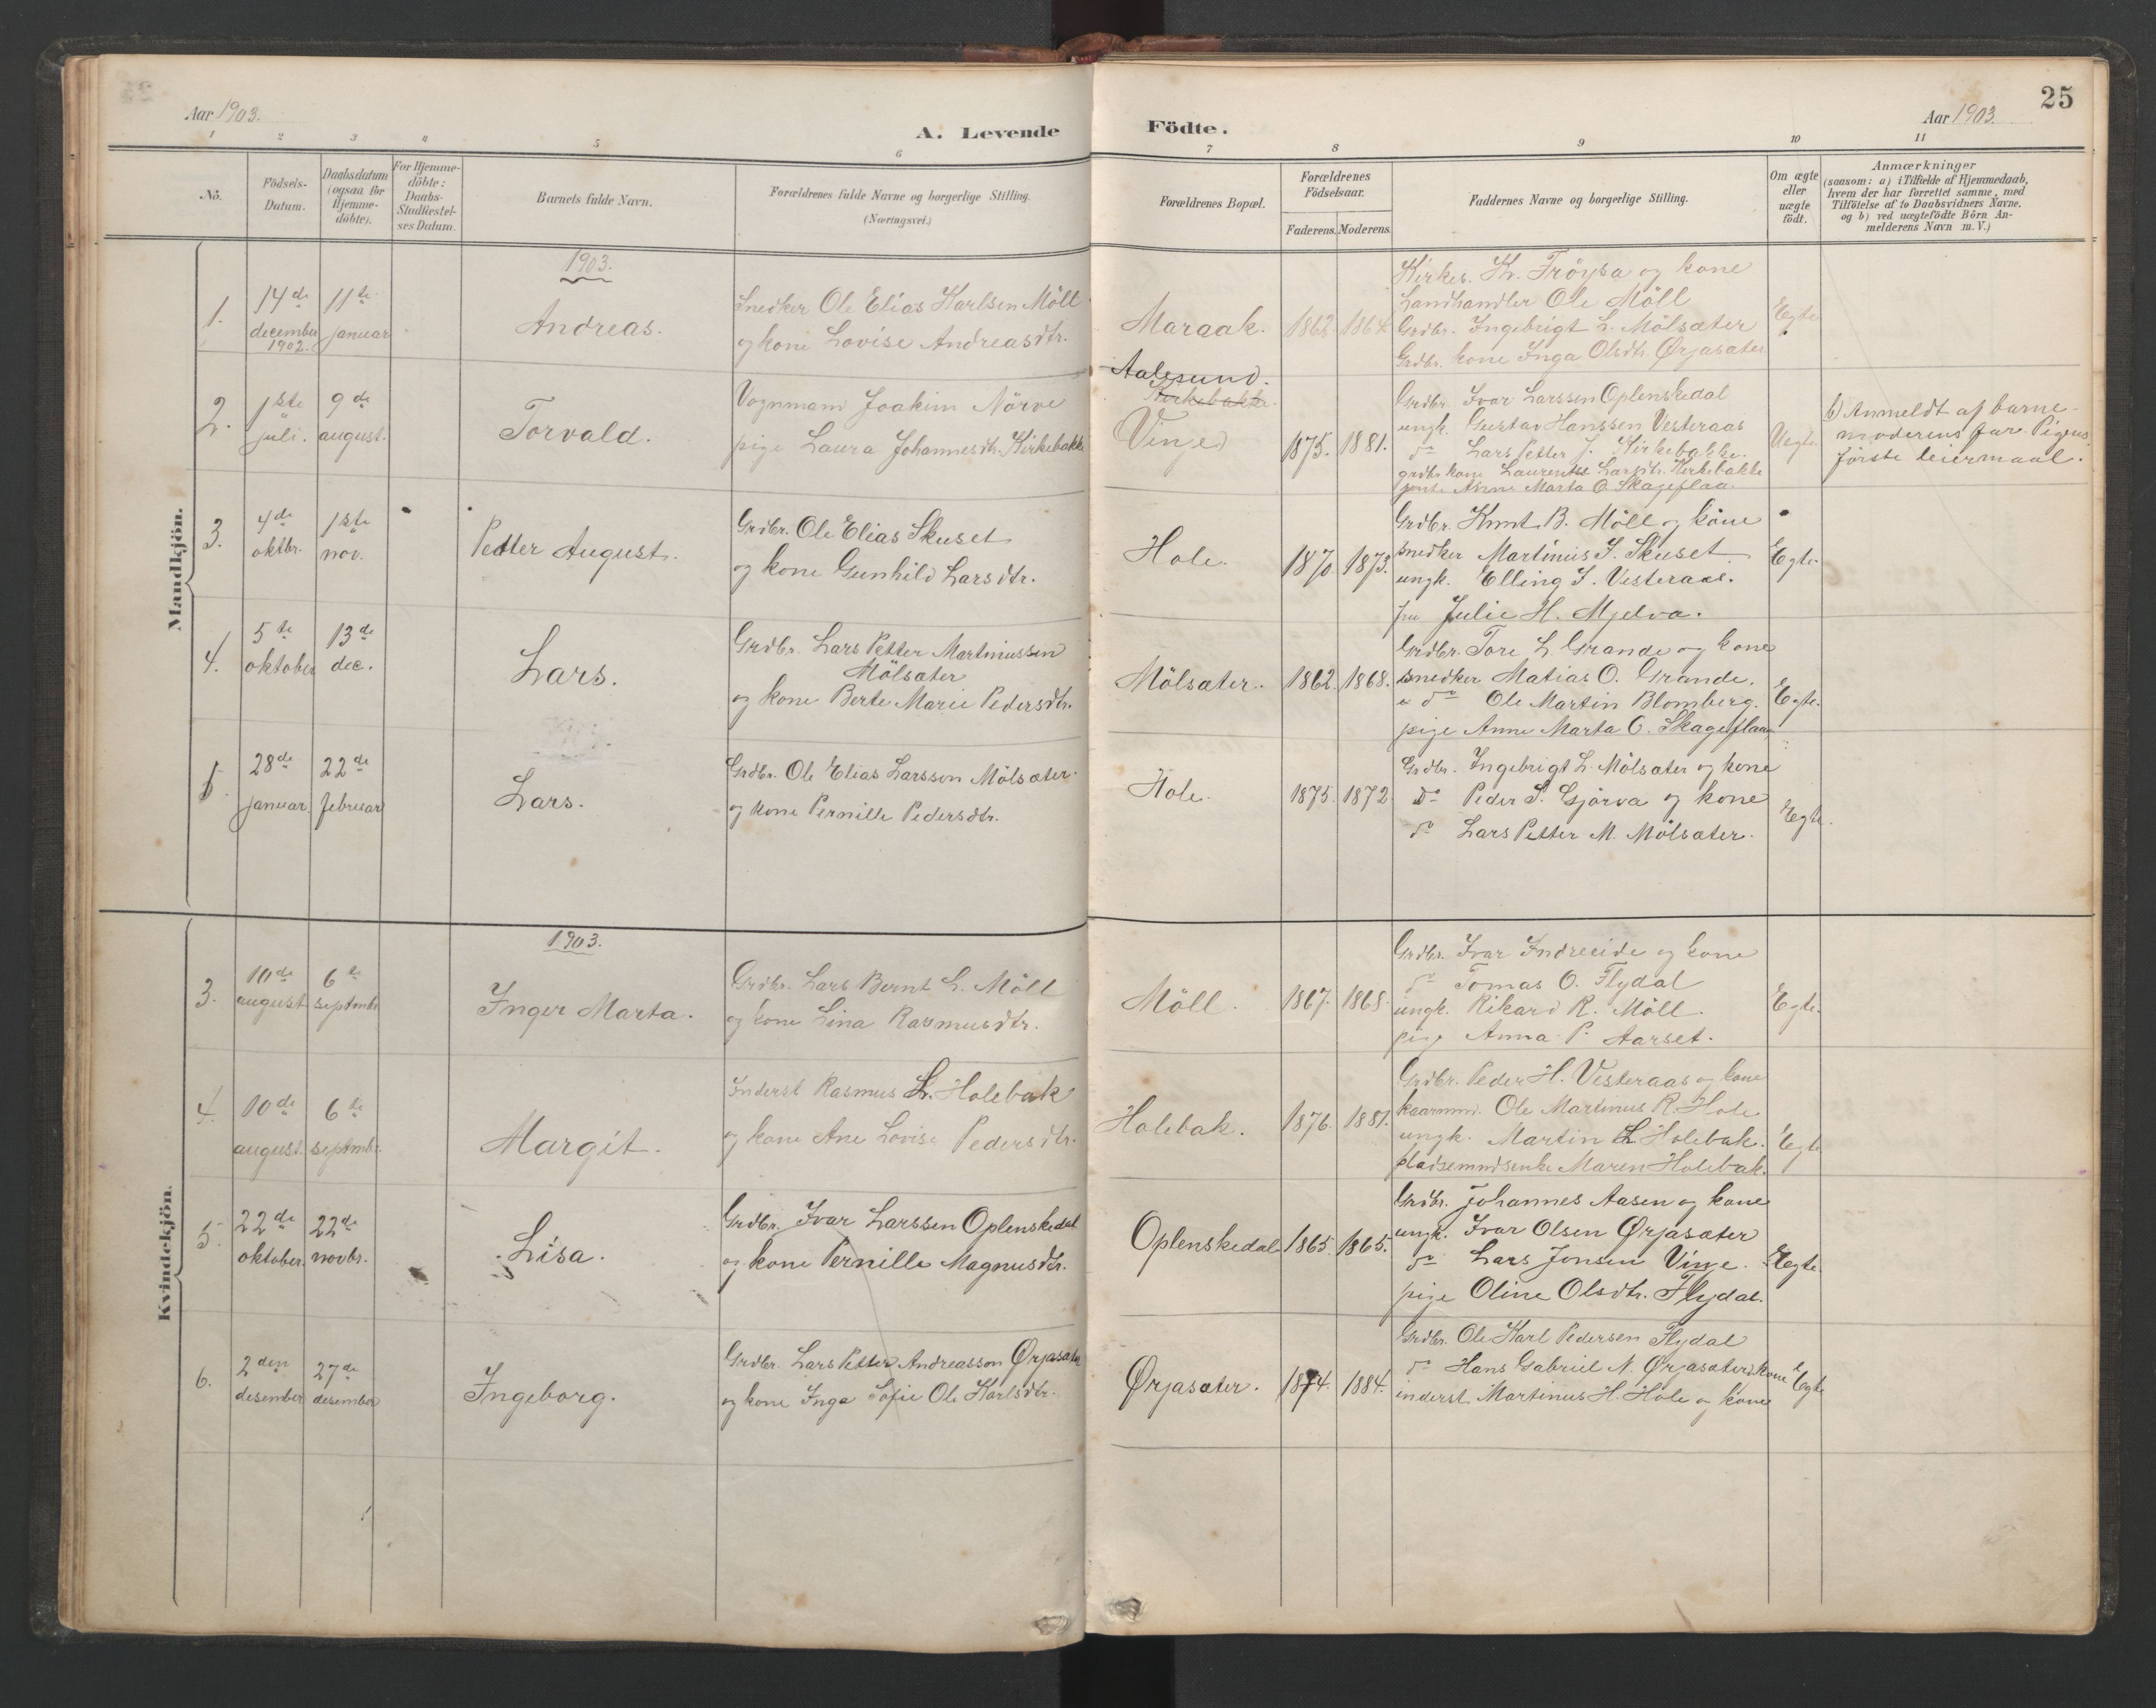 Aar 1903.
A. Levende
Födte.
Aar 1903.
25
1 2 3 4 5 6 7 8 9 10 11
No.
Födsels-Datum.
Daabsdatum (ogsaa for Hjemme-döbte).
For Hjemme-döbte: Daabs-Stadfæstel-ses Datum.
Barnets fulde Navn.
Forældrenes fulde Navne og borgerlige Stilling.
(Næringsvei.)
Forældrenes Bopæl.
Forældrenes Födselsaar.
Faderens. Moderens.
Faddernes Navne og borgerlige Stilling.
Om ægte eller uægte födt.
Anmærkninger
(saasom: a) i Tilfælde af Hjemmedaab,
hvem der har forrettet samme, med
Tilföielse af to Daabsvidners Navne.
og b) ved uægtefödte Börn An-
melderens Navn m. V.)
Mandkjön.
1903.
1.
14de december 1902.
11te januar
Andreas.
Snedker Ole Elias Karlsen Möll
og kone Lovise Andreasdtr.
Maraak.
1862 1864
Kirkes. Kr. Fröysa og kone
Landhandler Ole Möll
Grdbr. Ingebrigt L. Mölsæter
Grdbr. kone Inga Olsdtr. Ørjasæter
Egte
2.
1ste juli.
9de august.
Torvald.
Vognmand Joakim Nörve
pige Laura Johannesdtr. Kirkebakke
Aalesund.
Kirkebakke.
Vinje
1875. 1881.
Grdbr. Ivar Larssen Oplenskedal
ungk. Gustav Hanssen Vesteraas
do Lars Petter J. Kirkebakke.
grdbr. kone Laurentse Larsdtr. Kirkebakke
jente Anne Marta O. Skageflaa.
Uegte.
b) Anmeldt af barne-
moderens far. Pigens
förste leiermaal.
3.
4de oktbr.
1ste nov.
Petter August.
Grdbr. Ole Elias Skuset
og kone Gunhild Larsdtr.
Hole.
1870. 1873.
Grdbr. Knut B. Möll og kone
snedker Martinus I. Skuset
ungk. Elling I. Vesteraas.
fru Julie H. Mjelva.
Egte.
4.
5te oktober
13de dec.
Lars.
Grdbr. Lars Petter Martinussen
Mölsæter
og kone Berte Marie Pedersdtr.
Mölsæter.
1862. 1868.
Grdbr. Tore L. Grande og kone
snedker Matias O. Grande.
do Ole Martin Blomberg.
pige Anne Marta O. Skageflaa
Egte.
5.
28de januar
22de februar
Lars.
Grdbr. Ole Elias Larsson Mölsæter.
og kone Pernille Pedersdtr.
Hole.
1875. 1872
Grdbr. Ingebrigt L. Mölsæter og kone
Do Peder S. Gjörva og kone
do Lars Petter M. Mölsæter.
Egte.
Kvindekjön.
1903.
3.
10de august
6te septmbr.
Inger Marta.
Grdbr. Lars Bernt L. Möll
og kone Lina Rasmusdtr.
Möll.
1867. 1868
Grdbr. Ivar Indreeide og kone
do Tomas O. Flydal
ungk. Rikard R. Möll.
pige Anna P. Aarset.
Egte.
4.
10de august.
6te septmbr.
Margit.
Inderst Rasmus L. Holebak
og kone Ane Lovise Pedersdtr.
Holebak.
1876. 1881.
Grdbr. Peder H. Vesteraas og kone
kaarmnd. Ole Martinus R. Hole
ungk. Martin L. Holebak.
pladsemndsenke Maren Holebak.
Egte
5.
22de oktober.
22de novbr.
Lisa.
Grdbr. Ivar Larssen Oplenskedal
og kone Pernille Magnusdtr.
Oplenskedal
1865. 1865.
Grdbr. Johannes Aasen og kone
ungk. Ivar Olsen Ørjasæter
do Lars Jonsen Vinje.
pige Oline Olsdtr. Flydal.
Egte.
6.
2den desember
27de desember
Ingeborg.
Grdbr. Lars Petter Andreasson Ørjasæter
og kone Inga Sofie Ole Karlsdtr.
Ørjasæter.
1874. 1884.
Grdbr. Ole Karl Pedersen Flydal
do Hans Gabriel N. Ørjasæter og kone
inderst Martinus H. Hole og kone
Egte